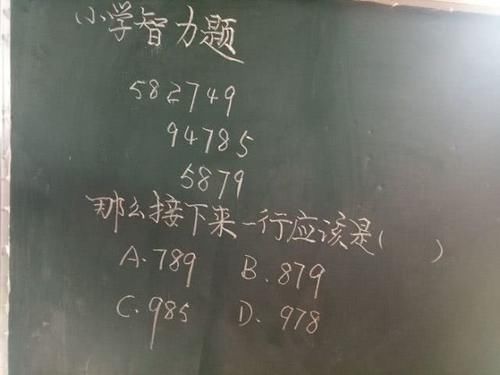 小学智力题
582749
94785
5879
那么接下来一行应该是( )
A.789 B.879
C.985 D.978